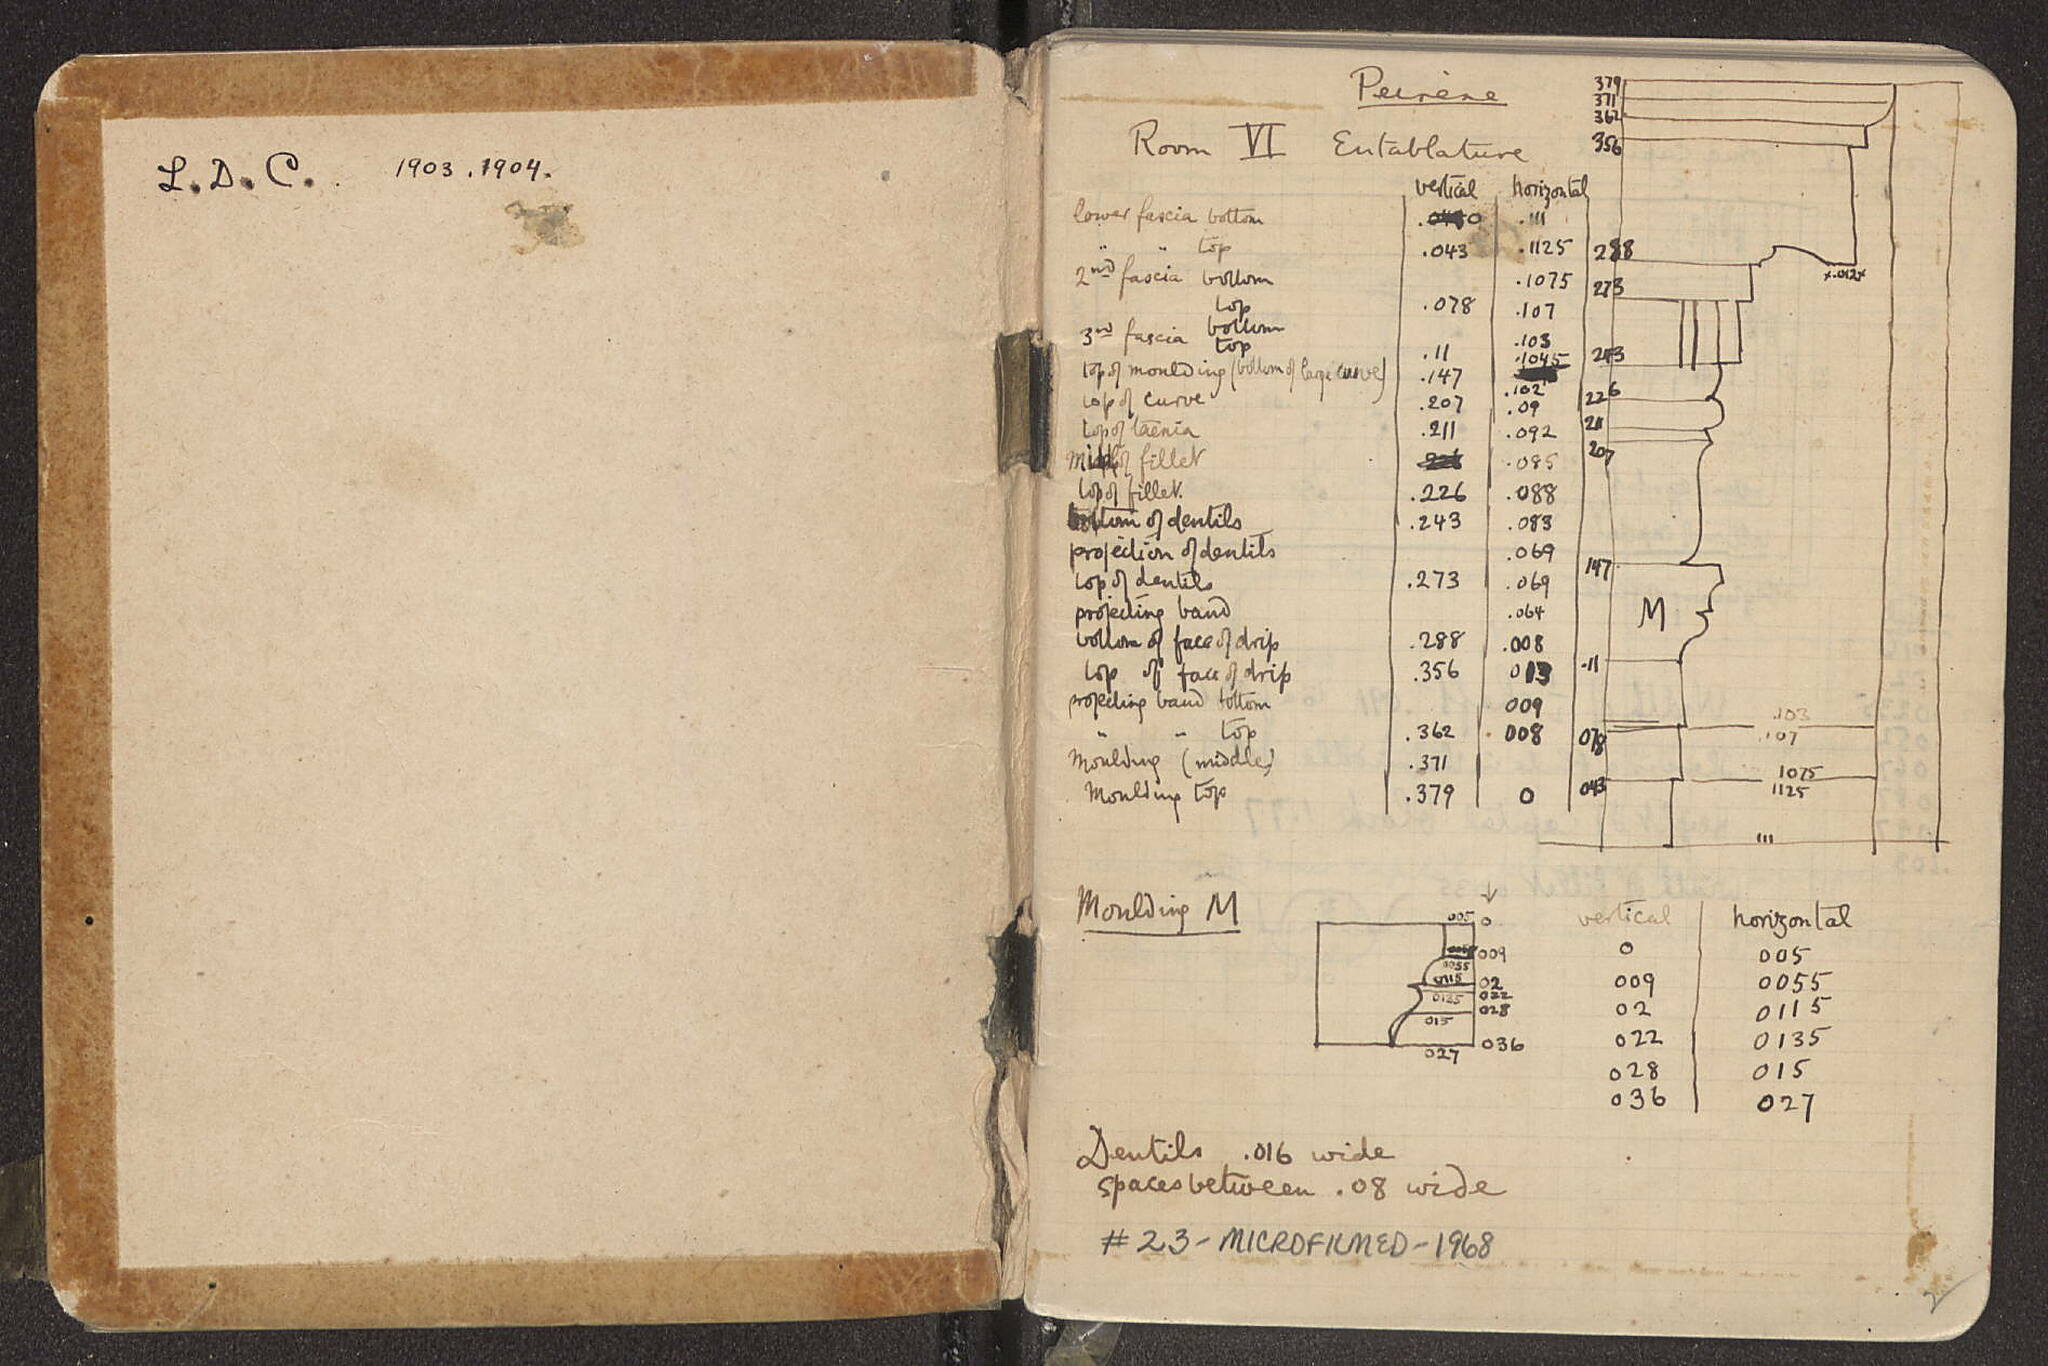 L. D. C. 1903.1904.
Peirene
Room VI Entablature
vertical horizontal
lower fascia bottom 0 .111
" " top .043 .1125
2nd fascia bottom .1075
top .078 .107
3rd fascia bottom .103
top .11 .1045
top of moulding (bottom of large curve) .147 .102
top of curve .207 .09
top of taenia .211 .092
middle of fillet .085
top of fillet. .226 .088
bottom of dentils .243 .083
projection of dentils .069
top of dentils .273 .069
projecting band .064
bottom of face of drip .288 .008
top of face of drip .356 013
projecting band bottom 009
" " top .362 .008
Moulding (middle) .371
Moulding top .379 0
379
371
362
356
288
x.012x
273
243
226
211
207
147
M
.11
.103
078 .107
1075
043 1125
111
Moulding M
005 0
009
0055
0115 02
0125 022
028
015
036
027
vertical horizontal
0 005
009 0055
02 0115
022 0135
028 015
036 027
Dentils .016 wide
spaces between .08 wide
# 23 - MICROFILMED - 1968
2